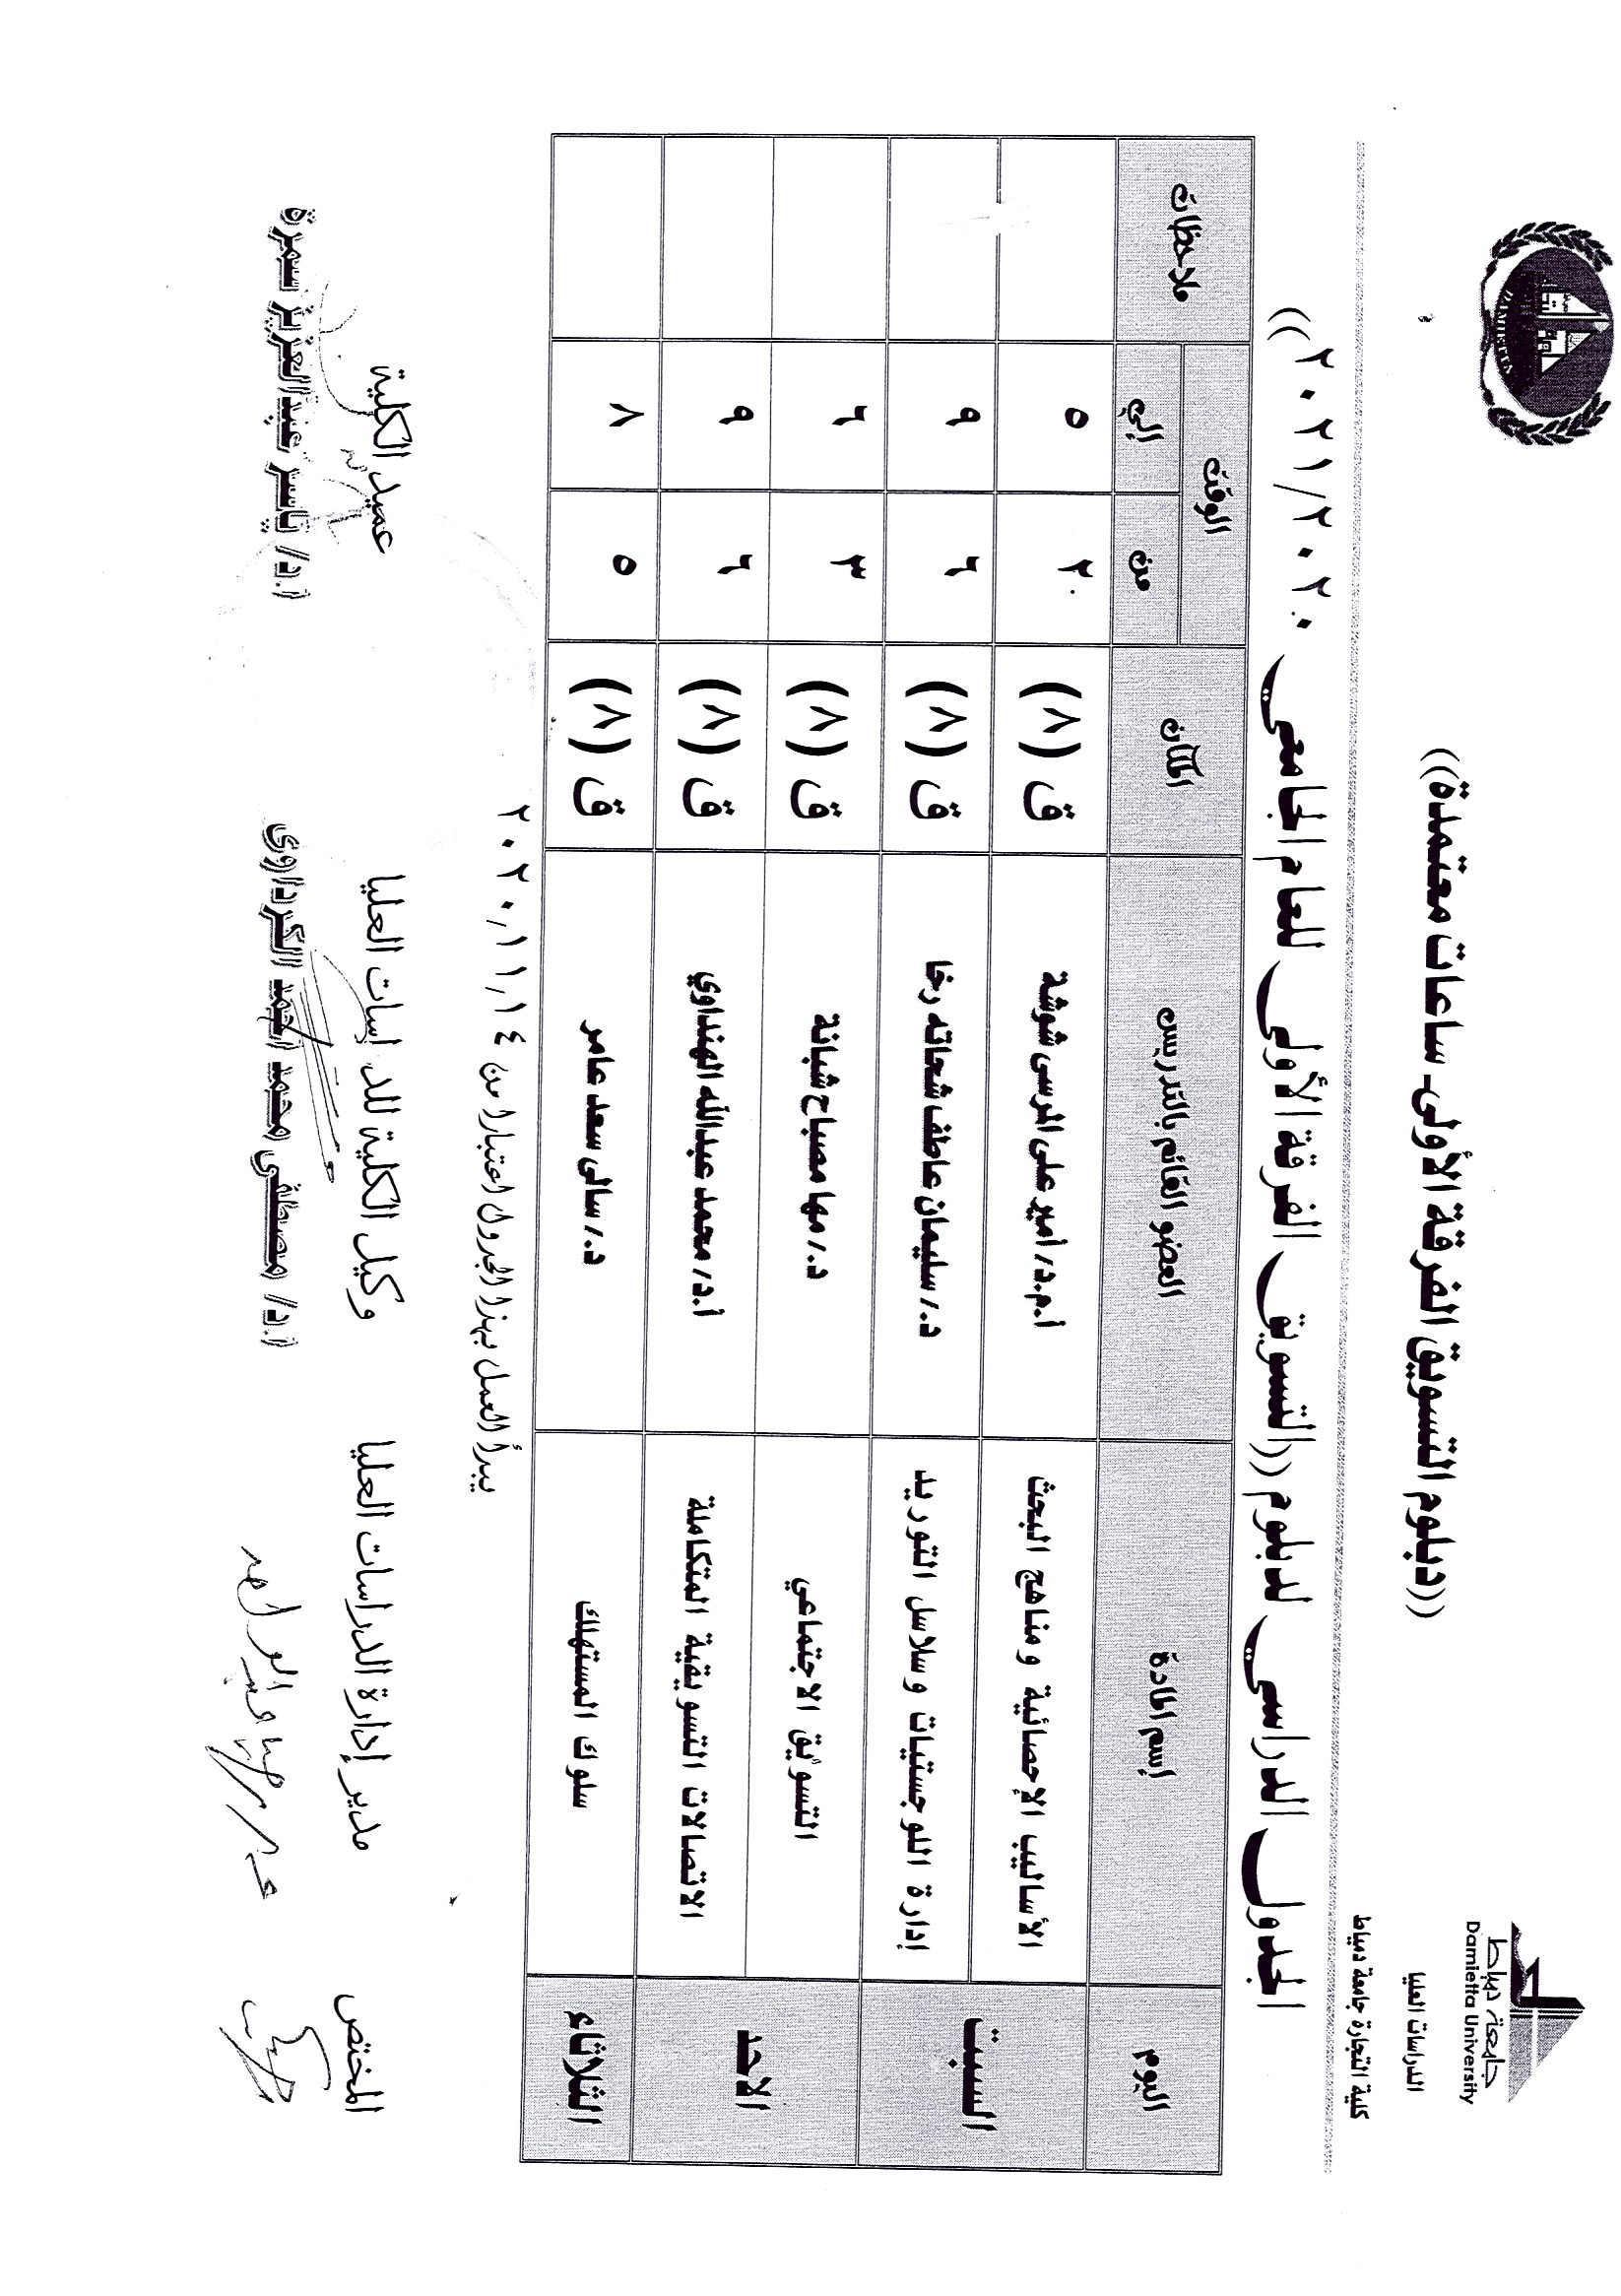 جامعة دمياط
Damietta University
الدراسات العليا
كلية التجارة جامعة دمياط
DAMIETTA
((دبلوم التسويق الفرقة الأولى ساعات معتمدة))
الجدول الدراسي لدبلوم ((التسويق الفرقة الأولى للعام الجامعي ٢٠٢٠/٢٠٢١))
اليوم إسم المادة العضو القائم بالتدريس المكان الوقت ملاحظات
من إلي
السبت الأساليب الإحصائية ومناهج البحث أ.م.د/ امير على المرسى شوشة ق (٨) ٢ ٥
إدارة اللوجستيات وسلاسل التوريد د./ سليمان عاطف شحاته رخا ق (٨) ٦ ٩
الاحد التسويق الاجتماعي د./ مها مصباح شبانة ق (٨) ٣ ٦
الاتصالات التسويقية المتكاملة أ.د/ محمد عبدالله الهنداوي ق (٨) ٦ ٩
الثلاثاء سلوك المستهلك د./ سالى سعد عامر ق (٨) ٥ ٨
يبدأ العمل بهذا الجدول اعتبارا من ٢٠٢٠/١١/١٤
المختص مدير إدارة الدراسات العليا وكيل الكلية للدراسات العليا عميد الكلية
ا.د/ مصطفى محمد احمد الكرداوى ا.د/ ياسر عبدالعزيز سمرة